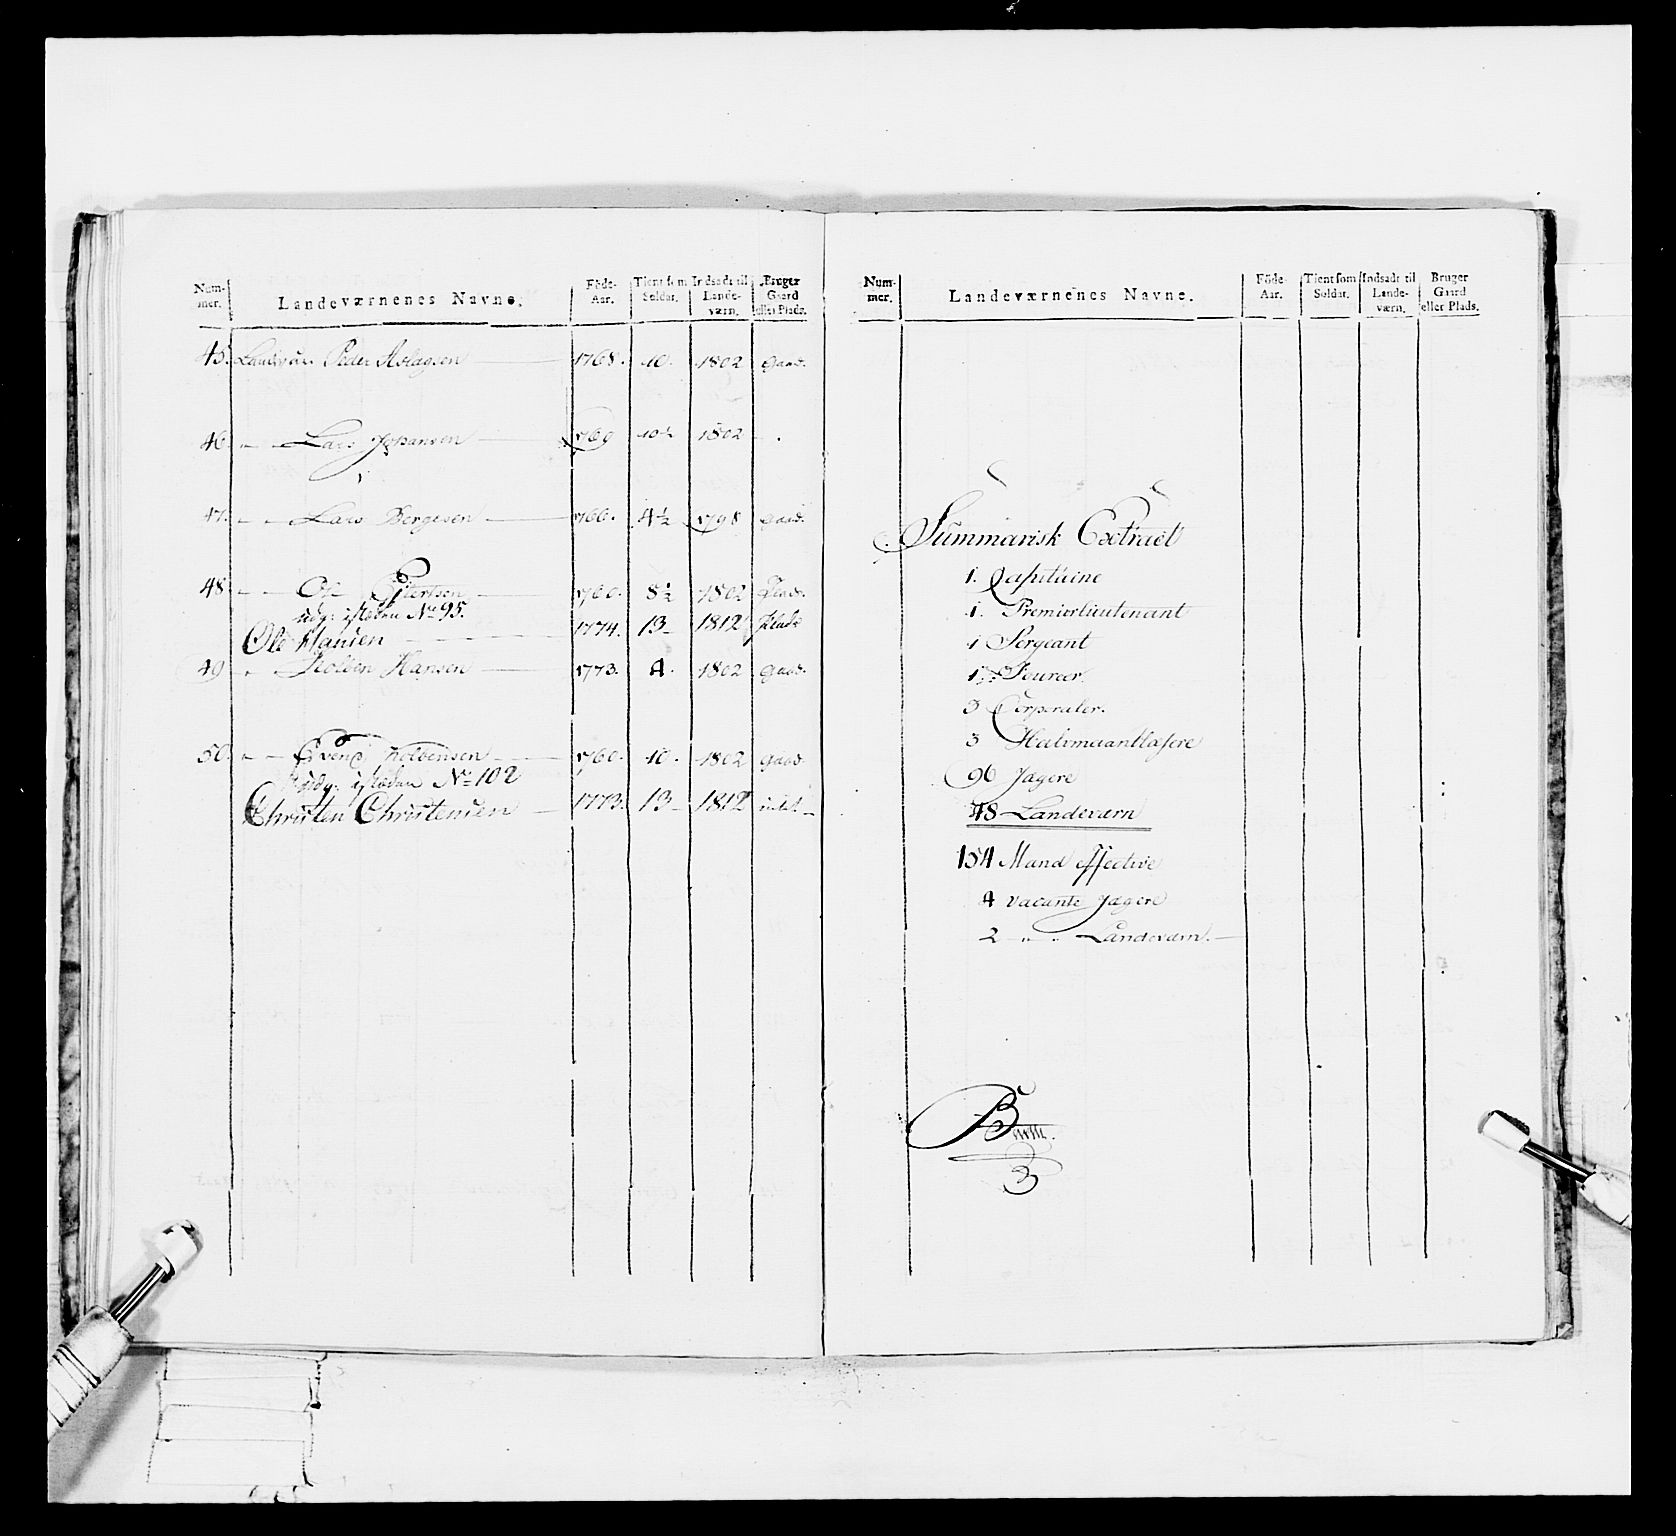 Num-mer. Landeværnenes Navne. Föde-Aar. Tient som Soldat. Indsadt til Lande-værn. Bruger Gaard eller Plads.
45. Landværn Peder Aslagsen 1768. 10. 1802 Gaard.
46. " Lars Johansen 1769 10½ 1802
47. " Lars Bergesen 1766. 4½ 1798 Gaard.
48. " Ole Gjertsen 1760. 8½ 1802 Plads.
udg: isteden No 95.
Ole Hansen 1774. 13 1812 Plads
49 " Kolben Hansen 1773. 4. 1802 Gaard.
50. " Svend Kolbensen 1760. 10. 1802 Gaard
udg: isteden No 102
Christen Christensen 1773. 13 1812 intet
Num-mer. Landeværnenes Navne. Föde-Aar. Tient som Soldat. Indsadt til Lande-værn. Bruger Gaard eller Plads.
Summarisk Extract
1. Capitaine
1. Premierlieutenant
1 Sergeant
1 Fourer.
3 Corporaler.
3 Halvmaanblasere
96 Jagere
48 Landeværn
154 Mand effective
4 vacante Jægere
2 " " Landeværn.